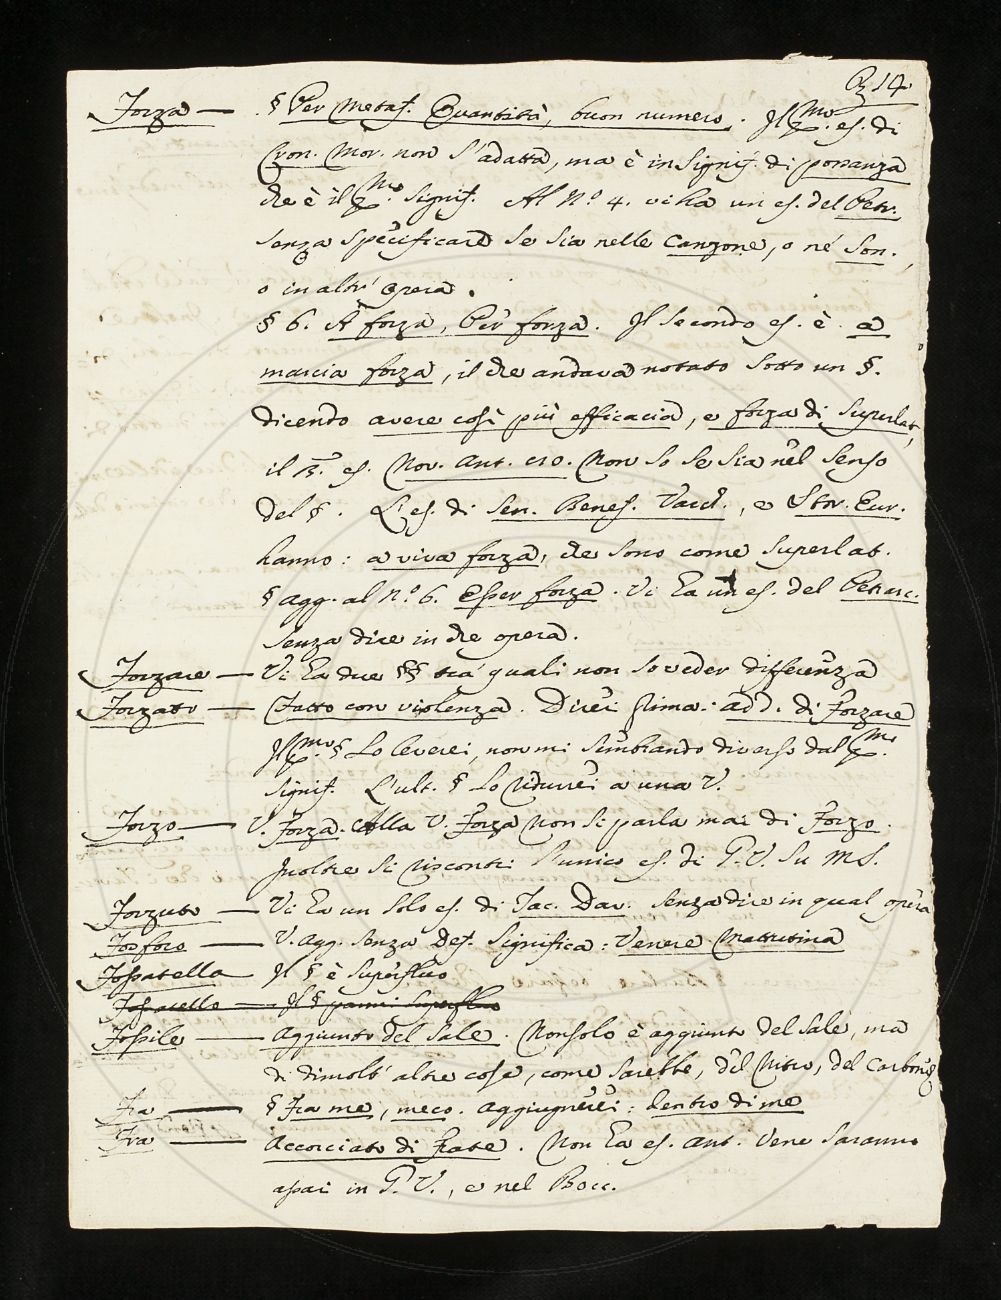 14
Forza — § Per Metaf. Quantità, buon numero. Il pmo. es. di
Cron. Mor. non s'adatta, ma è in signif. di possanza
che è il pmo. signif. Al N.o 4. vi ha un es. del Petr.
senza specificare se sia nelle Canzone, o né Son.,
o in altr' opera.
§ 6. A forza, Per forza. Il secondo es. è a
marcia forza, il che andava notato sotto un §.
dicendo avere così più efficacia, e forza di Superlat,
il 3.o es. Nov. Ant. Non so se sia nel senso
del §. L'es. di Sen. Benef. Varch., e Stor. Eur.
hanno: a viva forza, che sono come superlat.
§ agg. al N.o 6. Esser forza. Vi ha un es. del Petrarc.
senza dire in che opera.
Forzare — Vi ha due §§ tra' quali non so veder differenza
Forzato — Fatto con violenza. Direi prima: add. di Forzare
Il pmo. § Lo leverei, non mi sembrando diverso dal pmo.
signif. L'ult. § Lo ridurrei a una V.
Forzo — V. Forza. Alla V. Forza non si parla mai di Forzo.
Inoltre si riscontri l'unico es. di G. V. su MS.
Forzuto — Vi ha un solo es. di Tac. Dav. senza dire in qual opera
Fosforo — V. agg. senza Def. Significa: Venere Mattutina
Fossatella — Il § è superfluo
Fossatello — Il § parmi superfluo
Fossile — Aggiunto del Sale. Non solo è aggiunto del Sale, ma
di dimolt' altre cose, come sarebbe, del Nitro, del Carbone
Fra — § Fra me, meco. Aggiugnerei: dentro di me
Fra — Accorciato di Frate. Non ha es. ant. Vene saranno
assai in G. V., e nel Bocc.